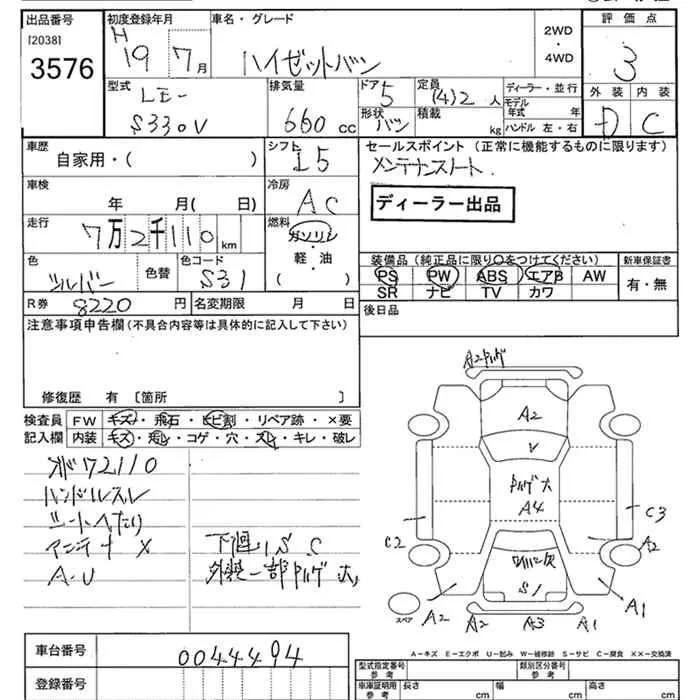 出品番号
[2038]
3576
初度登録年月
H
19 7月
車名・グレード
ハイゼットバン
2WD
・
4WD
評価点
3
外装 内装
D C
型式
LE-
S330V
排気量
660 cc
ドア 5
形状 バン
定員
(4)2 人
積載
kg
ディーラー・並行
モデル年式 年
ハンドル 左・右
車歴
自家用・( )
シフト
L5
セールスポイント(正常に機能するものに限ります)
メンテナンスノート
ディーラー出品
車検
年 月( 日)
冷房
AC
走行
7万2千110km
燃料
ガソリン
・
軽・油
( )
色
シルバー
色替
色コード
S31
装備品(純正品に限り○をつけてください)
PS PW ABS エアB AW
SR ナビ TV カワ
新車保証書
有・無
R券 8220円
名変期限 月 日
後日品
注意事項申告欄(不具合内容等は具体的に記入して下さい)
修復歴 有 〔箇所 〕
検査員
記入欄
FW キズ・飛石・ヒビ割・リペア跡・×要
内装 キズ・汚レ・コゲ・穴・スレ・キレ・破レ
72110
ハンドルスレ
シートへたり
アンテナ ×
A-U
下廻りS C
外装一部ハゲ大
A2ハゲ
A2
V
ハゲ大
A4
S1
C2
C3
A2
A2
A3
A1
A1
スペア
A-キズ E-エクボ U-凹み W-補修跡 S-サビ C-腐食 XX-交換済
車台番号
0044494
登録番号
型式指定番号
参考
類別区分番号
参考
車庫証明用
参考
長さ cm
幅 cm
高さ cm